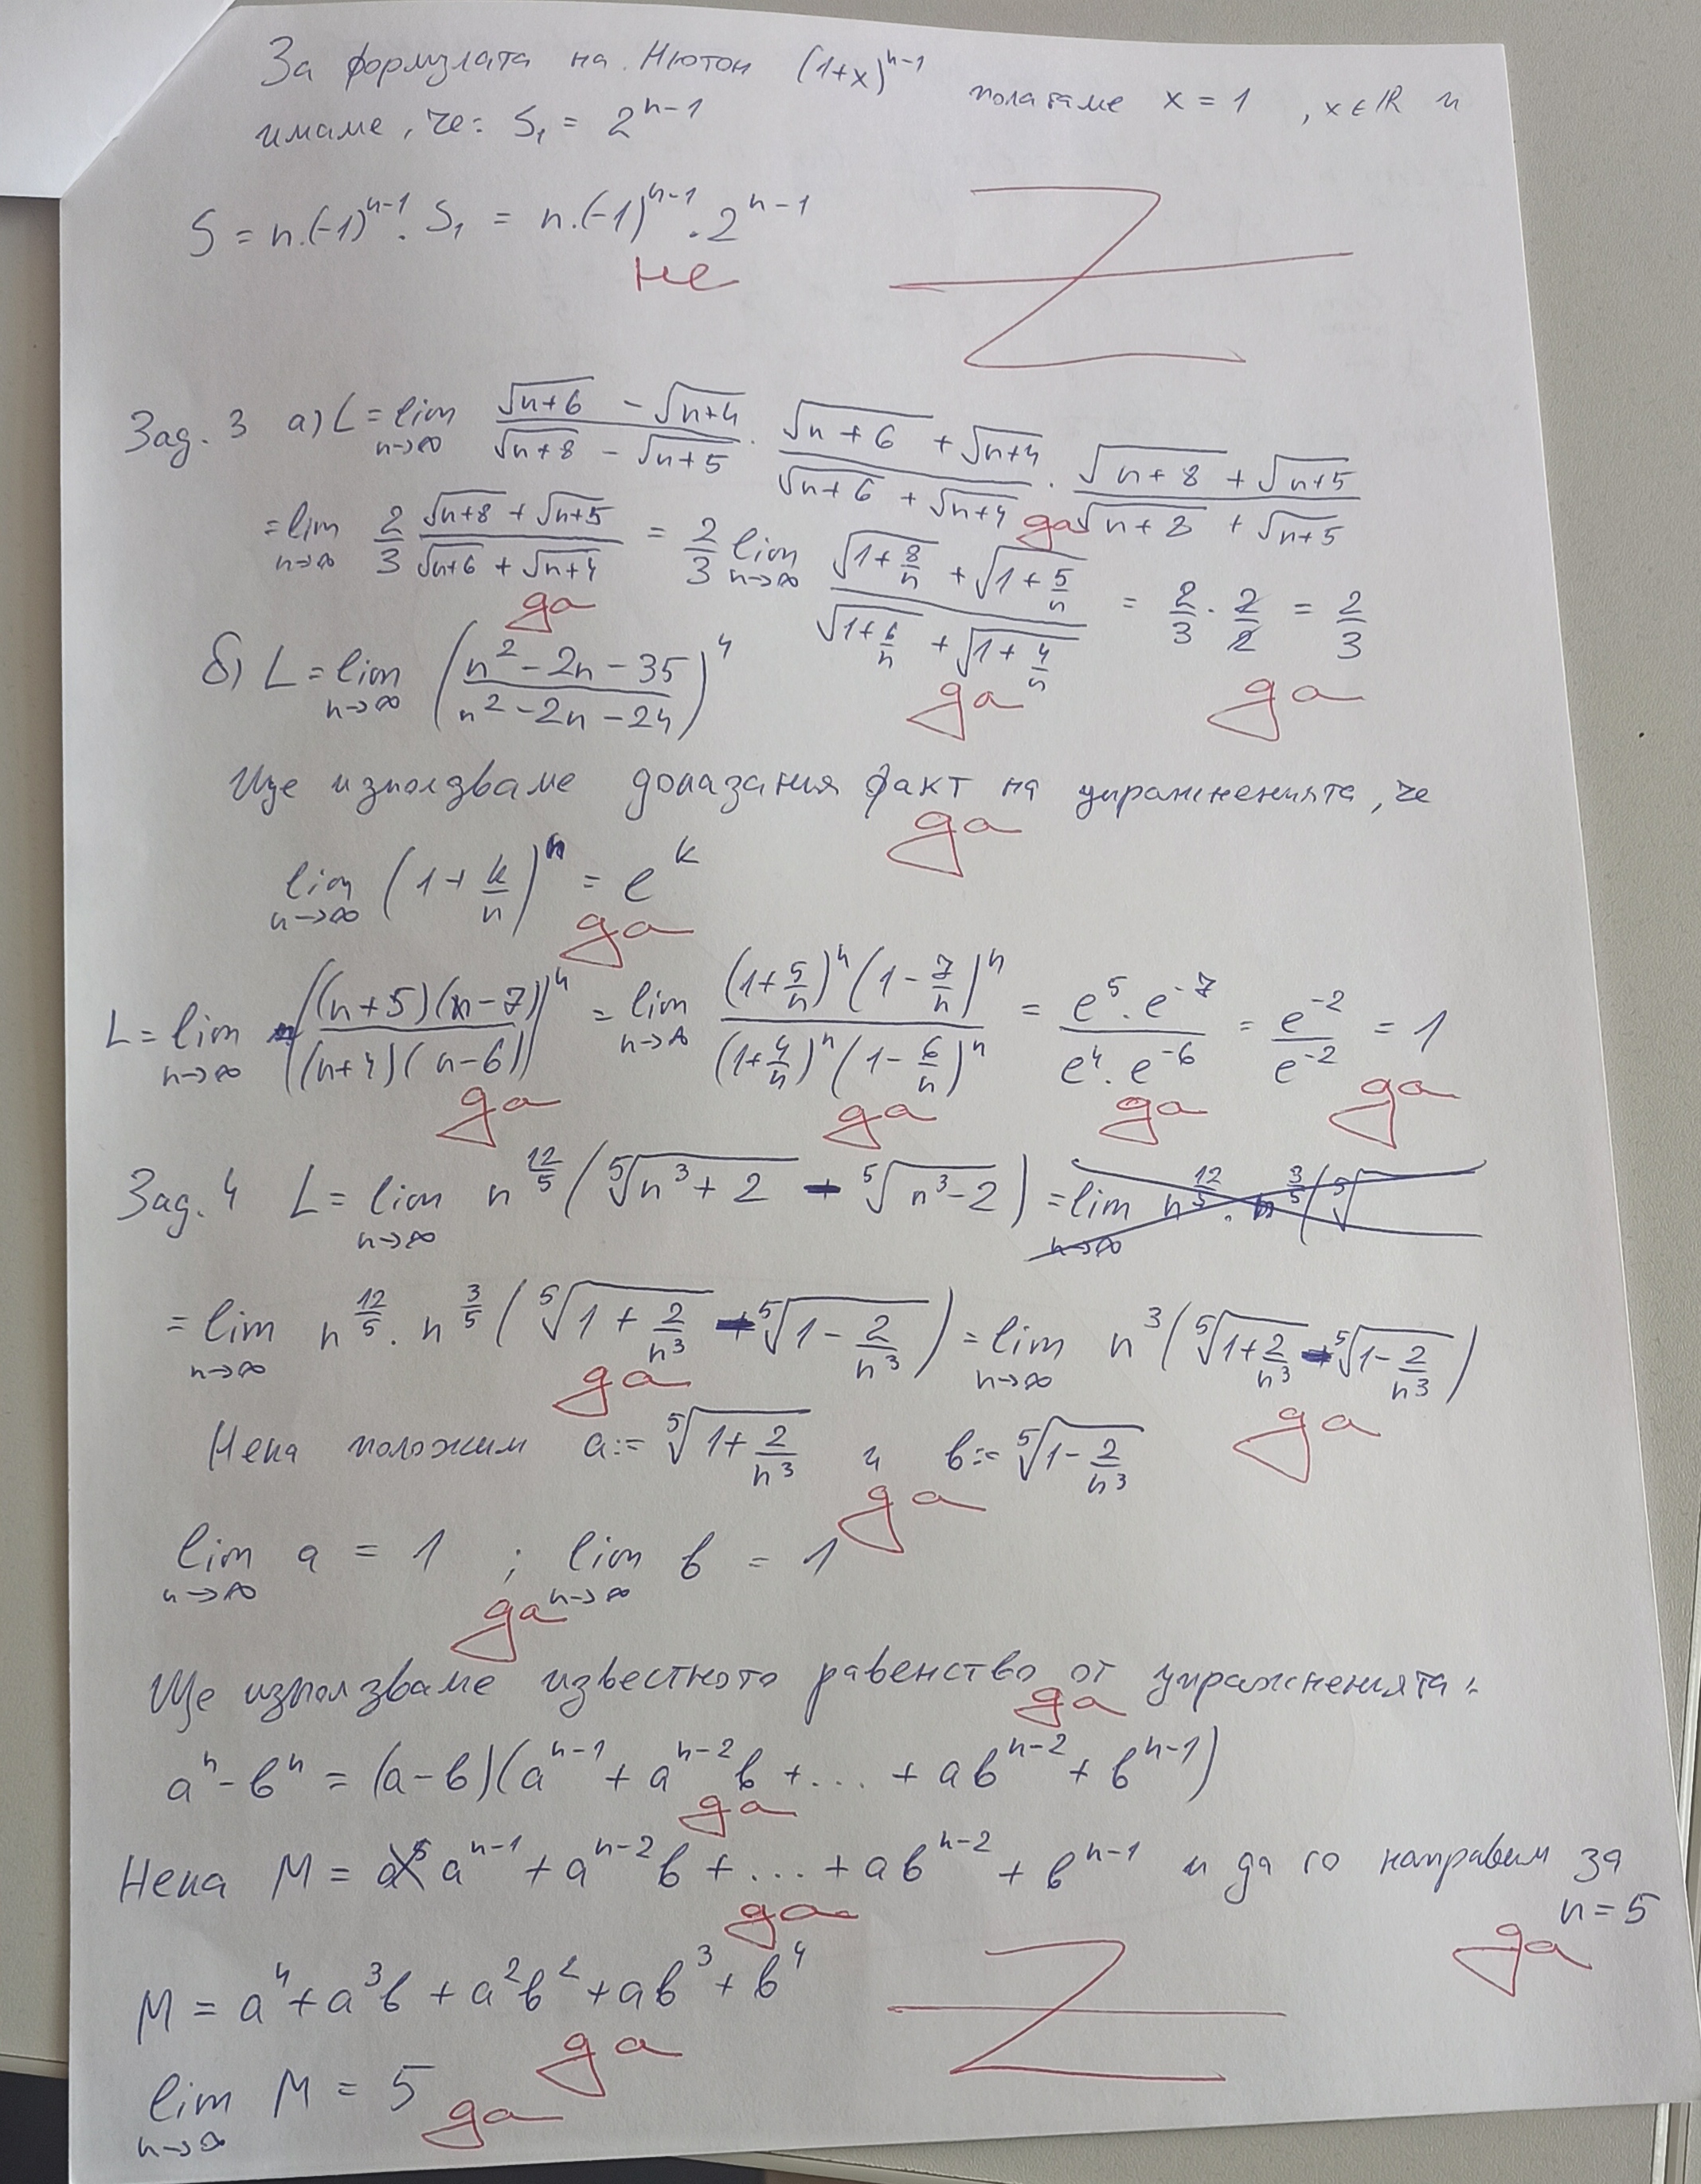 За формулата на Нютон (1+x)^{n-1} полагаме x = 1 , x ∈ ℝ и
имаме, че: S₁ = 2^{n-1}
S = n.(-1)^{n-1}. S₁ = n.(-1)^{n-1}.2^{n-1}
не
Зад. 3 а) L = lim_{n→∞} (√(n+6) - √(n+4))/(√(n+8) - √(n+5)) . (√(n+6) + √(n+4))/(√(n+6) + √(n+4)) . (√(n+8) + √(n+5))/(√(n+8) + √(n+5))
да
= lim_{n→∞} 2/3 (√(n+8) + √(n+5))/(√(n+6) + √(n+4)) = 2/3 lim_{n→∞} (√(1+8/n) + √(1+5/n))/(√(1+6/n) + √(1+4/n)) = 2/3 . 2/2 = 2/3
да да да
б) L = lim_{n→∞} ((n²-2n-35)/(n²-2n-24))^n
Ще използваме доказания факт на упражненията, че
да
lim_{n→∞} (1+k/n)^n = e^k
да
L = lim_{n→∞} (((n+5)(n-7))/((n+4)(n-6)))^n = lim_{n→∞} ((1+5/n)^n (1-7/n)^n)/((1+4/n)^n (1-6/n)^n) = (e⁵.e^{-7})/(e⁴.e^{-6}) = e^{-2}/e^{-2} = 1
да да да да
Зад. 4 L = lim_{n→∞} n^{12/5} (⁵√(n³+2) - ⁵√(n³-2)) = lim_{n→∞} n^{12/5} . n^{3/5} (⁵√
= lim_{n→∞} n^{12/5} . n^{3/5} (⁵√(1+2/n³) - ⁵√(1-2/n³)) = lim_{n→∞} n³ (⁵√(1+2/n³) - ⁵√(1-2/n³))
да да
Нека положим a := ⁵√(1+2/n³) и b := ⁵√(1-2/n³)
да
lim_{n→∞} a = 1 ; lim_{n→∞} b = 1
да
Ще използваме известното равенство от упражненията:
да
a^n - b^n = (a-b)(a^{n-1} + a^{n-2}b + ... + ab^{n-2} + b^{n-1})
да
Нека M = a^{n-1} + a^{n-2}b + ... + ab^{n-2} + b^{n-1} и да го направим за
n = 5
да да
M = a⁴ + a³b + a²b² + ab³ + b⁴
да
lim_{n→∞} M = 5
да